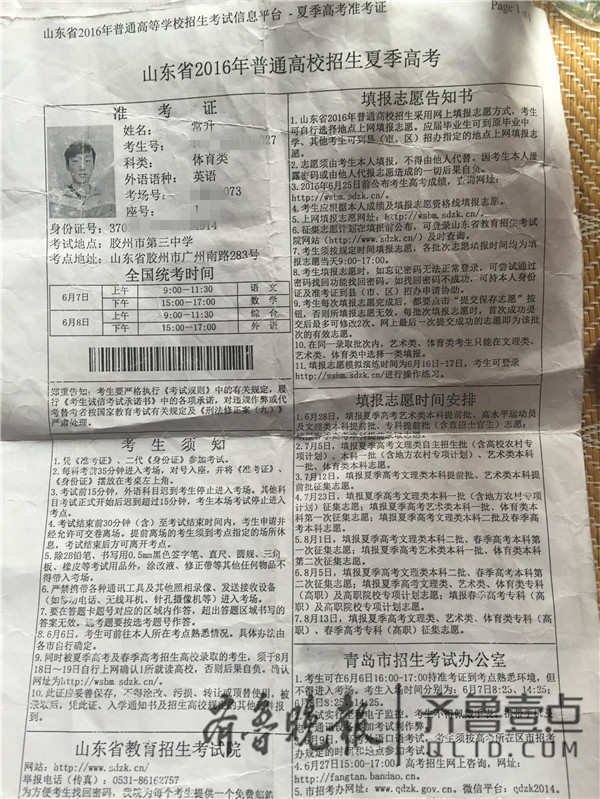 山东省2016年普通高等学校招生考试信息平台 - 夏季高考准考证
Page 1
山东省2016年普通高校招生夏季高考
准 考 证
姓名: 常升
考生号: 27
科类: 体育类
外语语种: 英语
考场号: 073
座号:
身份证号: 370 914
考试地点: 胶州市第三中学
考点地址: 山东省胶州市广州南路283号
全国统考时间
6月7日 上午 9:00-11:30 语文
下午 15:00-17:00 数学
6月8日 上午 9:00-11:30 综合
下午 15:00-17:00 外语
郑重告知:考生要严格执行《考试规则》中的有关规定,履
行《考生诚信考试承诺书》中的各项承诺,对违规作弊或代
考替考者按国家教育考试有关规定及《刑法修正案(九)》
严肃处理。
考 生 须 知
1.凭《准考证》、二代《身份证》参加考试。
2.每科考前35分钟进入考场,对号入座,并将《准考证》、
《身份证》摆放在考桌左上角。
3.考试前15分钟,外语科目迟到考生停止进入考场。其他科
目考试正式开始后迟到超过15分钟,考生本场考试停止进入考
点。
4.考试结束前30分钟(含)至考试结束时间内,考生申请并
经允许可交卷离场。提前离场的考生须到考点指定的场所休
息,考试结束后方可离开考点。
5.除2B铅笔、书写用0.5mm黑色签字笔、直尺、圆规、三角
板、橡皮等考试用品外,涂改液、修正带等其他任何物品不
得带入考场。
6.严禁携带各种通讯工具及其他照相录像、发送接收设备
(如移动电话、无线耳机、针孔摄像机等)进入考场。
7.要在答题卡题号对应的区域内作答,超出答题区域书写的
答案无效。选考题要按选考题号作答。
8.6月6日,考生可前往本人所在考点熟悉情况。具体办法由
各市自行确定。
9.同时被夏季高考及春季高考招生高校录取的考生,须于8月
18日～19日自行上网确认1所就读高校,否则后果自负。确认
网址为http://wsbm.sdzk.cn/。
10.此证应妥善保存,不得涂改、污损、转让或顶替使用,被
录取后,凭此证、入学通知书及招生高校规定的其他材料报
到。
山东省教育招生考试院
网站:http://www.sdzk.cn/
举报电话(传真):0531-86162757
填报志愿告知书
1.山东省2016年普通高校招生采用网上填报志愿方式,考生
可自行选择地点上网填报志愿。应届毕业生可到原毕业中
学、其他考生可到县(市、区)招办指定的地点上网填报志
愿。
2.志愿须由考生本人填报,不得由他人代替。因考生本人泄
露密码或由他人代报志愿造成的一切后果自负。
3.2016年6月25日前公布考生高考成绩,查询网址:
http://wsbm.sdzk.cn/。
4.考生应根据本人成绩及填报志愿资格线填报志愿。
5.上网填报志愿网址:http://wsbm.sdzk.cn/。
6.征集志愿计划在填报前公布,可登录山东省教育招生考试
院网站(http://www.sdzk.cn/)及时查询。
7.考生须按规定时间填报志愿,各批次志愿填报时间均为填
报志愿当天9:00-17:00。
8.考生填报志愿时,如忘记密码无法正常登录,可尝试通过
密码找回功能找回密码。如找回密码不成功,可持本人身份
证及准考证到县(市、区)招办申请协助。
9.考生每次填报志愿完成后,都要点击“提交保存志愿”按
钮,否则所填报志愿无效。每批次填报志愿时,首次成功提
交后最多可修改2次。网上最后一次提交成功的志愿即为该批
次的有效志愿。
10.在同一录取批次内,艺术类、体育类考生只能在文理类、
艺术类、体育类中选择一类填报。
11.填报志愿模拟演练时间为6月16日-17日,考生可登录
http://wsbm.sdzk.cn/进行操作练习。
填报志愿时间安排
1.6月28日,填报夏季高考文理类本科提前批、高水平运动员
及文理类本科提前批、专科提前批(含直招士官生)志愿。
2.7月5日,填报夏季高考文理类自主招生批(含高校农村专
项计划)、本科一批(含地方农村专项计划)、艺术类本科一
批、体育类本科志愿。
3.7月12日,填报夏季高考文理类本科提前批、艺术类本科提前
批征集志愿。
4.7月23日,填报夏季高考文理类本科一批(含地方农村专项
计划)征集志愿;填报夏季高考艺术类本科一批、体育类本
科第一次征集志愿;填报夏季高考文理类本科二批及春季高
考本科志愿。
5.8月1日,填报夏季高考文理类本科二批、春季高考本科第
一次征集志愿;填报夏季高考艺术类本科一批、体育类本科
第二次征集志愿。
6.8月5日,填报夏季高考文理类本科二批、春季高考本科第
二次征集志愿。填报夏季高考文理类、艺术类、体育类专科
(高职)及高职院校专项计划志愿;填报春季高考专科(高
职)及高职院校专项计划志愿。
7.8月13日,填报夏季高考文理类、艺术类、体育类专科
(高职)、春季高考专科(高职)征集志愿。
青岛市招生考试办公室
1.考生可在6月6日16:00-17:00持准考证到考点熟悉环境,但
不得进入考场。考生入场时间分别为:6月7日8:25,14:25;
4.6月27日15:00-17:00 高考招生网上咨询。网址:
http://fangtan.bandao.cn。
5.市招考办网址:www.qdzk.gov.cn。微信平台:qdzk2014。
齐鲁晚报 齐鲁壹点
QLYD.COM